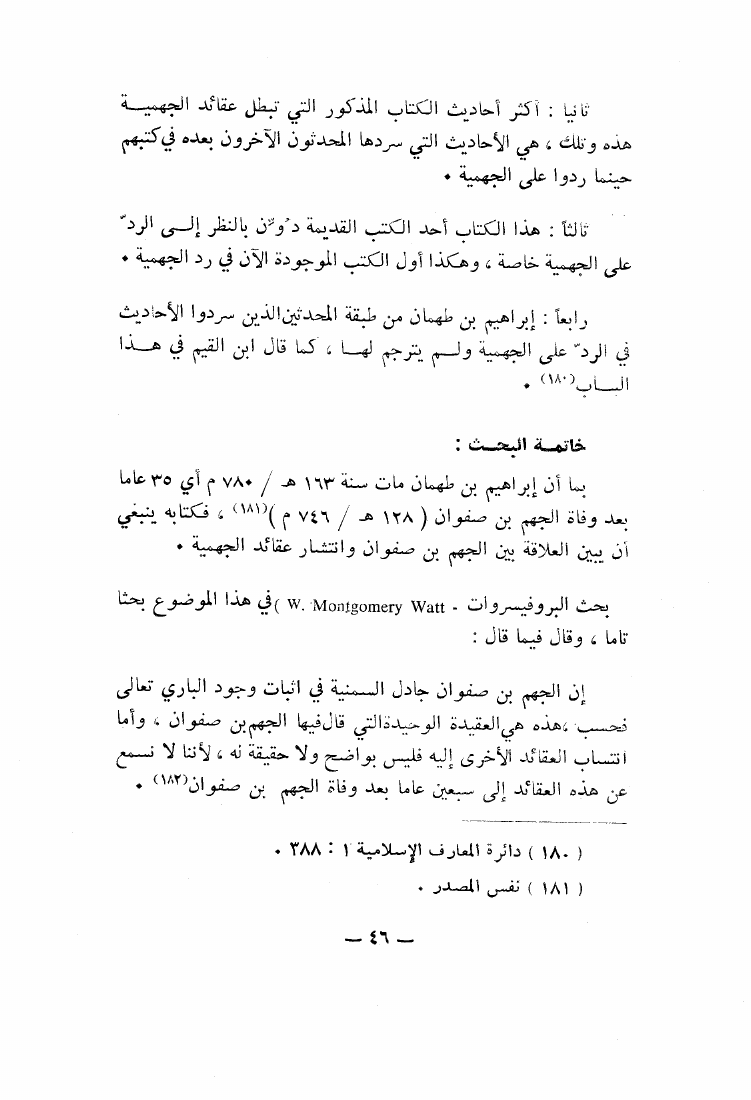 ثانيا : أكثر أحاديث الكتاب المذكور التي تبطل عقائد الجهميــة
هذه وتلك ، هي الأحاديث التي سردها المحدثون الآخرون بعده في كتبهم
حينما ردوا على الجهمية .
ثالثاً : هذا الكتاب أحد الكتب القديمة دُوِّن بالنظر إلــى الردّ
على الجهمية خاصة ، وهكذا أول الكتب الموجودة الآن في رد الجهمية .
رابعاً : إبراهيم بن طهمان من طبقة المحدثين الذين سردوا الأحاديث
في الردّ على الجهمية ولــم يترجم لهــا ، كما قال ابن القيم في هــذا
البــاب(١٨٠) .
خاتمـة البحـث :
بما أن إبراهيم بن طهمان مات سنة ١٦٣ هـ / ٧٨٠ م أي ٣٥ عاما
بعد وفاة الجهم بن صفوان ( ١٢٨ هـ / ٧٤٦ م )(١٨١) ، فكتابه ينبغي
أن يبين العلاقة بين الجهم بن صفوان وانتشار عقائد الجهمية .
بحث البروفيسروات - W. Montgomery Watt ) في هذا الموضوع بحثا
تاما ، وقال فيما قال :
إن الجهم بن صفوان جادل السمنية في اثبات وجود الباري تعالى
فحسب ، هذه هي العقيدة الوحيدة التي قال فيها الجهم بن صفوان ، وأما
انتساب العقائد الأخرى إليه فليس بواضح ولا حقيقة له ، لأننا لا نسمع
عن هذه العقائد إلى سبعين عاما بعد وفاة الجهم بن صفوان(١٨٢) .
( ١٨٠ ) دائرة المعارف الإسلامية ١ : ٣٨٨ .
( ١٨١ ) نفس المصدر .
— ٤٦ —